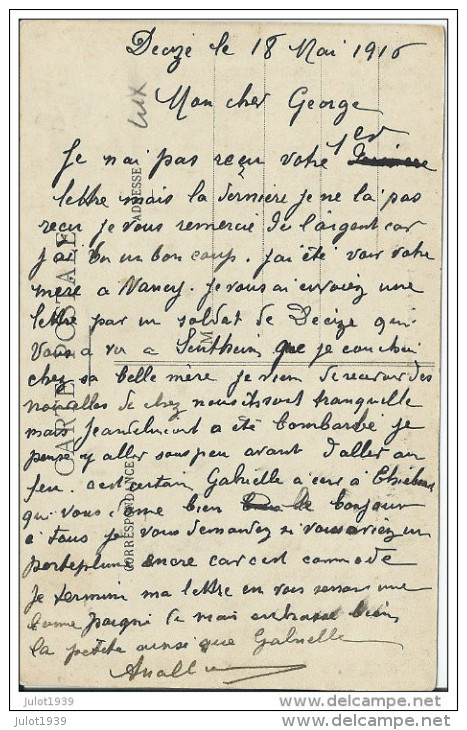 Decize le 18 Mai 1916
Lux
Mon cher George
1er
Je nai pas reçu votre
lettre mais la dernière je ne la pas
reçu je vous remercie de l'argent car
j'ai bu un bon coup. j'ai été voir votre
mère a Nancy. je vous ai envoiez une
lettre par un soldat de Decize qui
vous a vu a Sentheim que je couchai
chez sa belle mère je viens de recevoir des
nouvelles de chez nous ils sont tranquille
mais Jeandelincourt a été bombardé je
pense y aller sous peu avant d'aller au
feu. c'est certain Gabrielle a écrit a
qui vous aime bien le bonjour
a tous je vous demandez si vous aviez un
porteplume encre car c'est commode
je termine ma lettre en vous serrant une
bonne poigné de main embrasse bien
la petite ainsi que Gabrielle
CARTE POSTALE
CORRESPONDANCE
ADRESSE
M
julot1939
delcampe.net
julot1939
delcampe.net